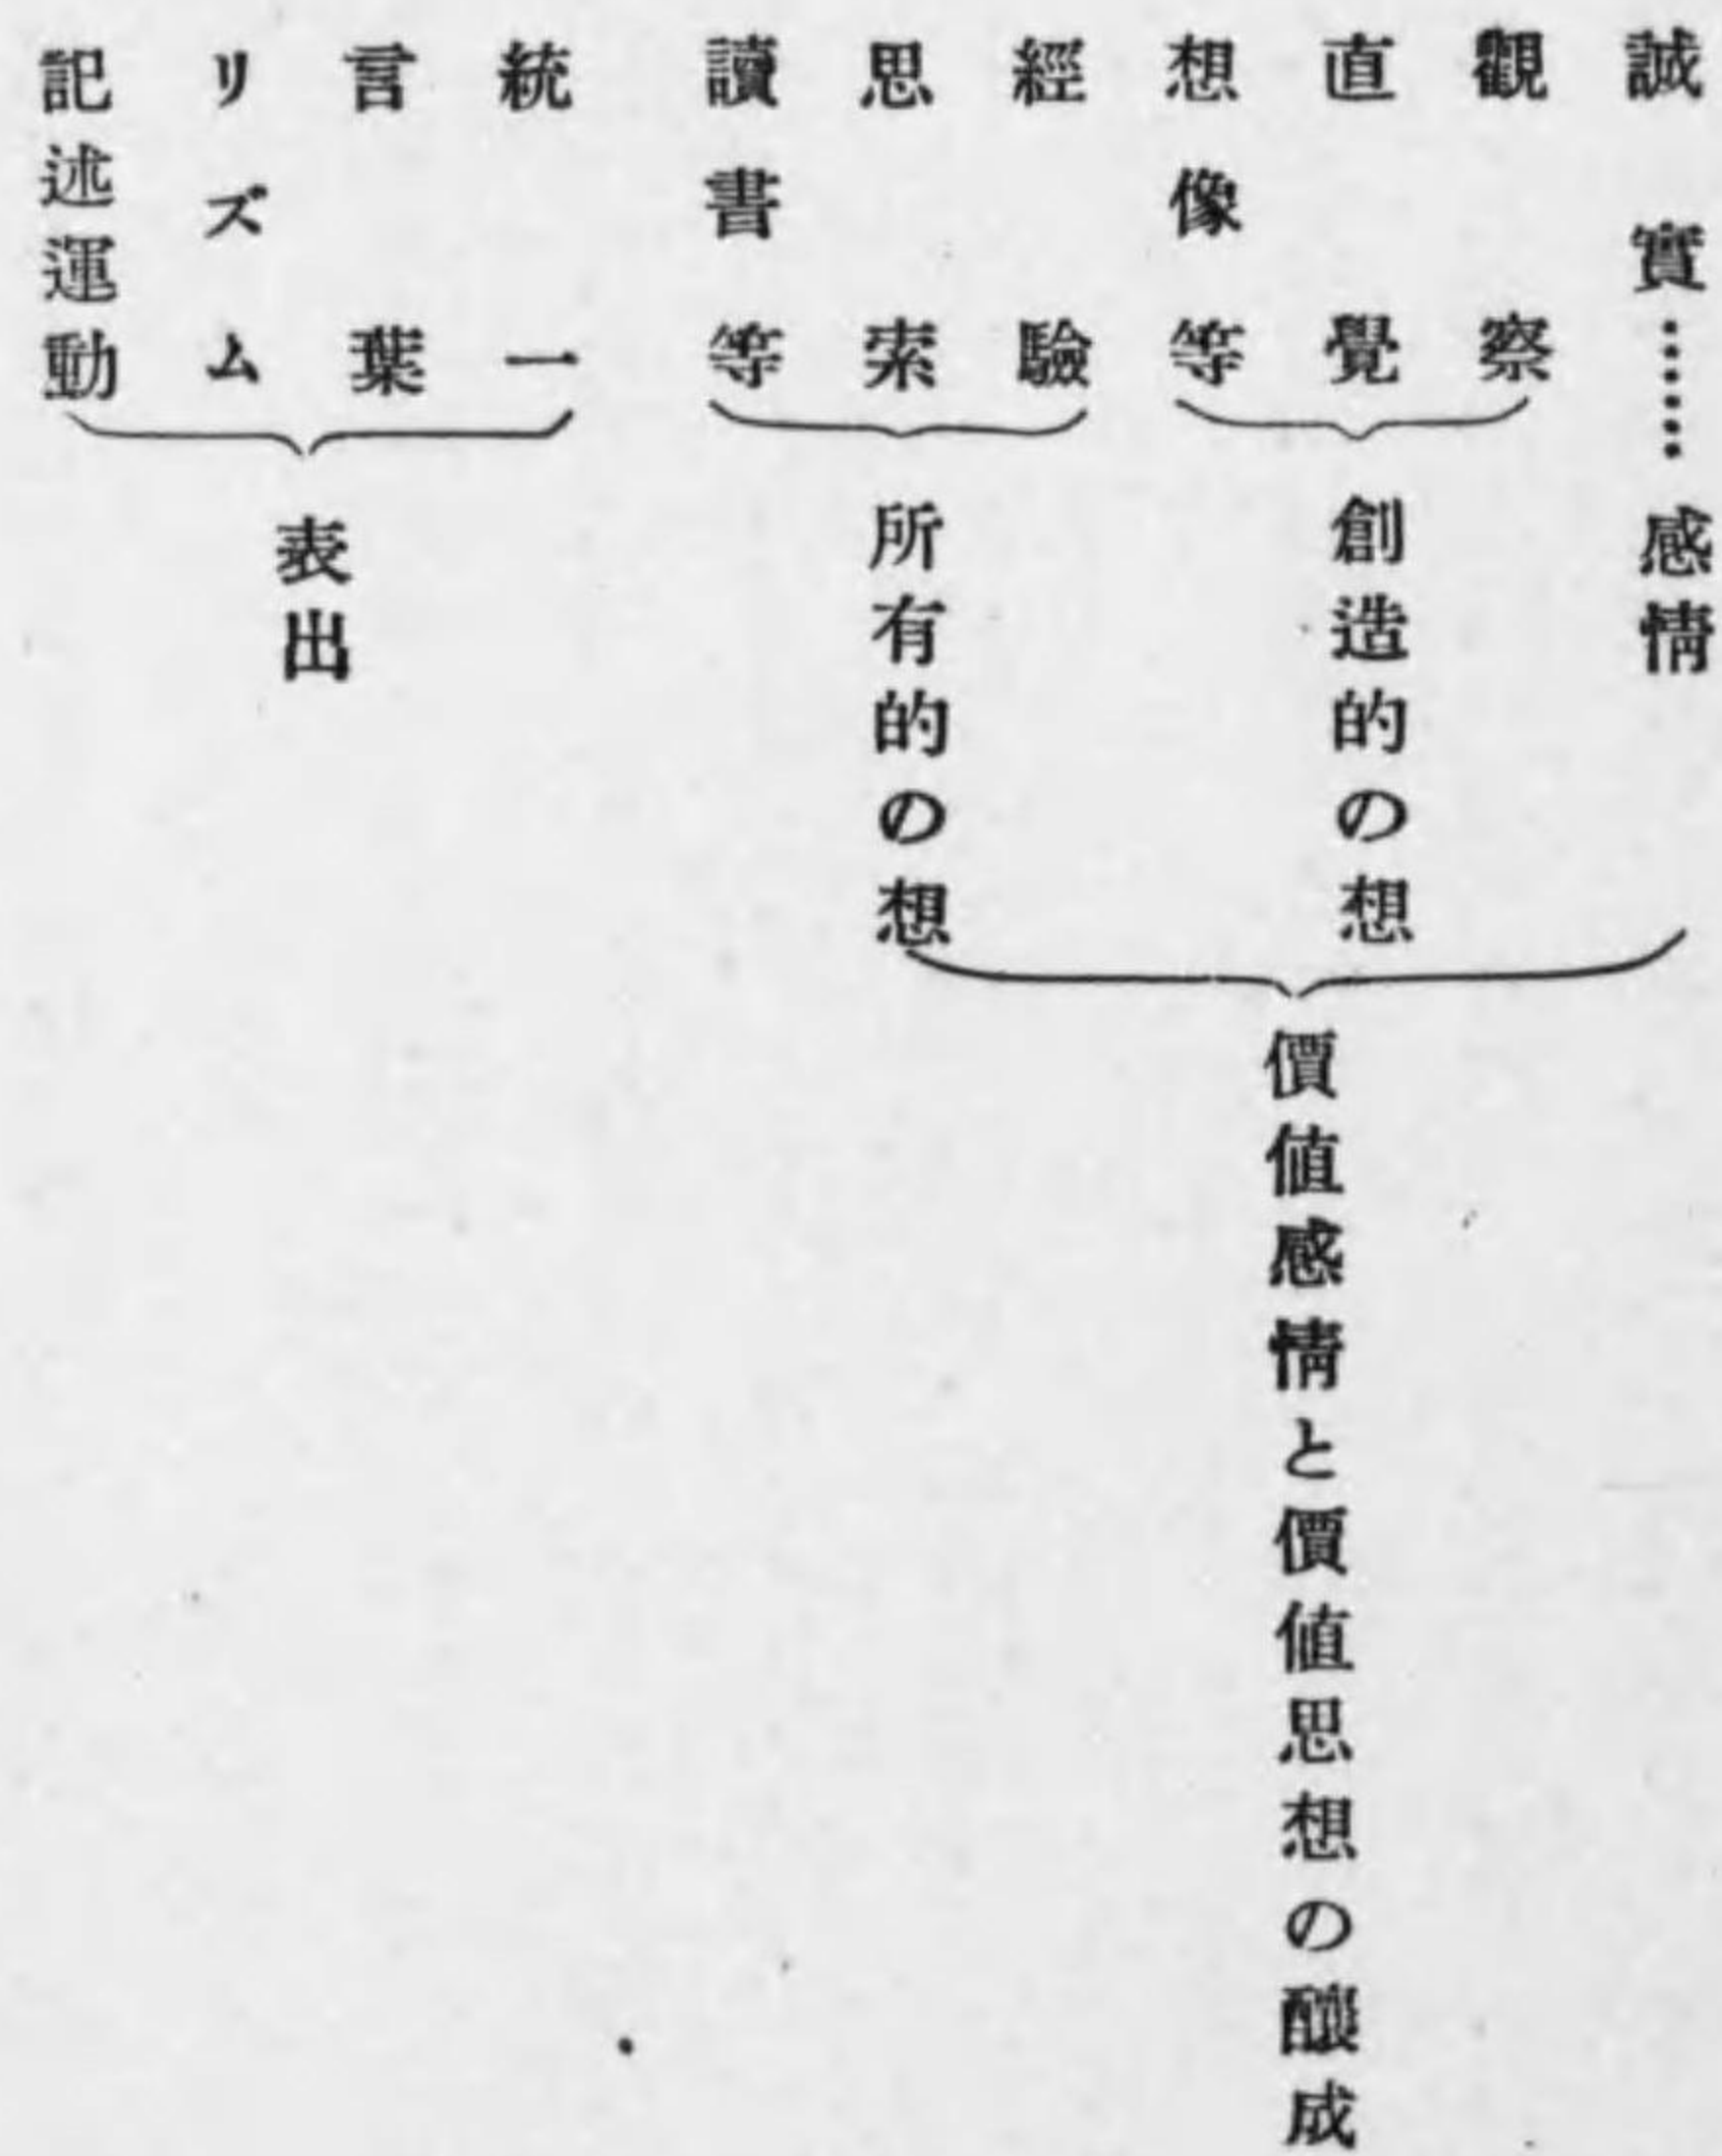 誠實……感情
觀察
直覺
想像等
創造的の想
經驗
思索
讀書等
所有的の想
價值感情と價值思想の釀成
統一
言葉
リズム
記述運動
表出